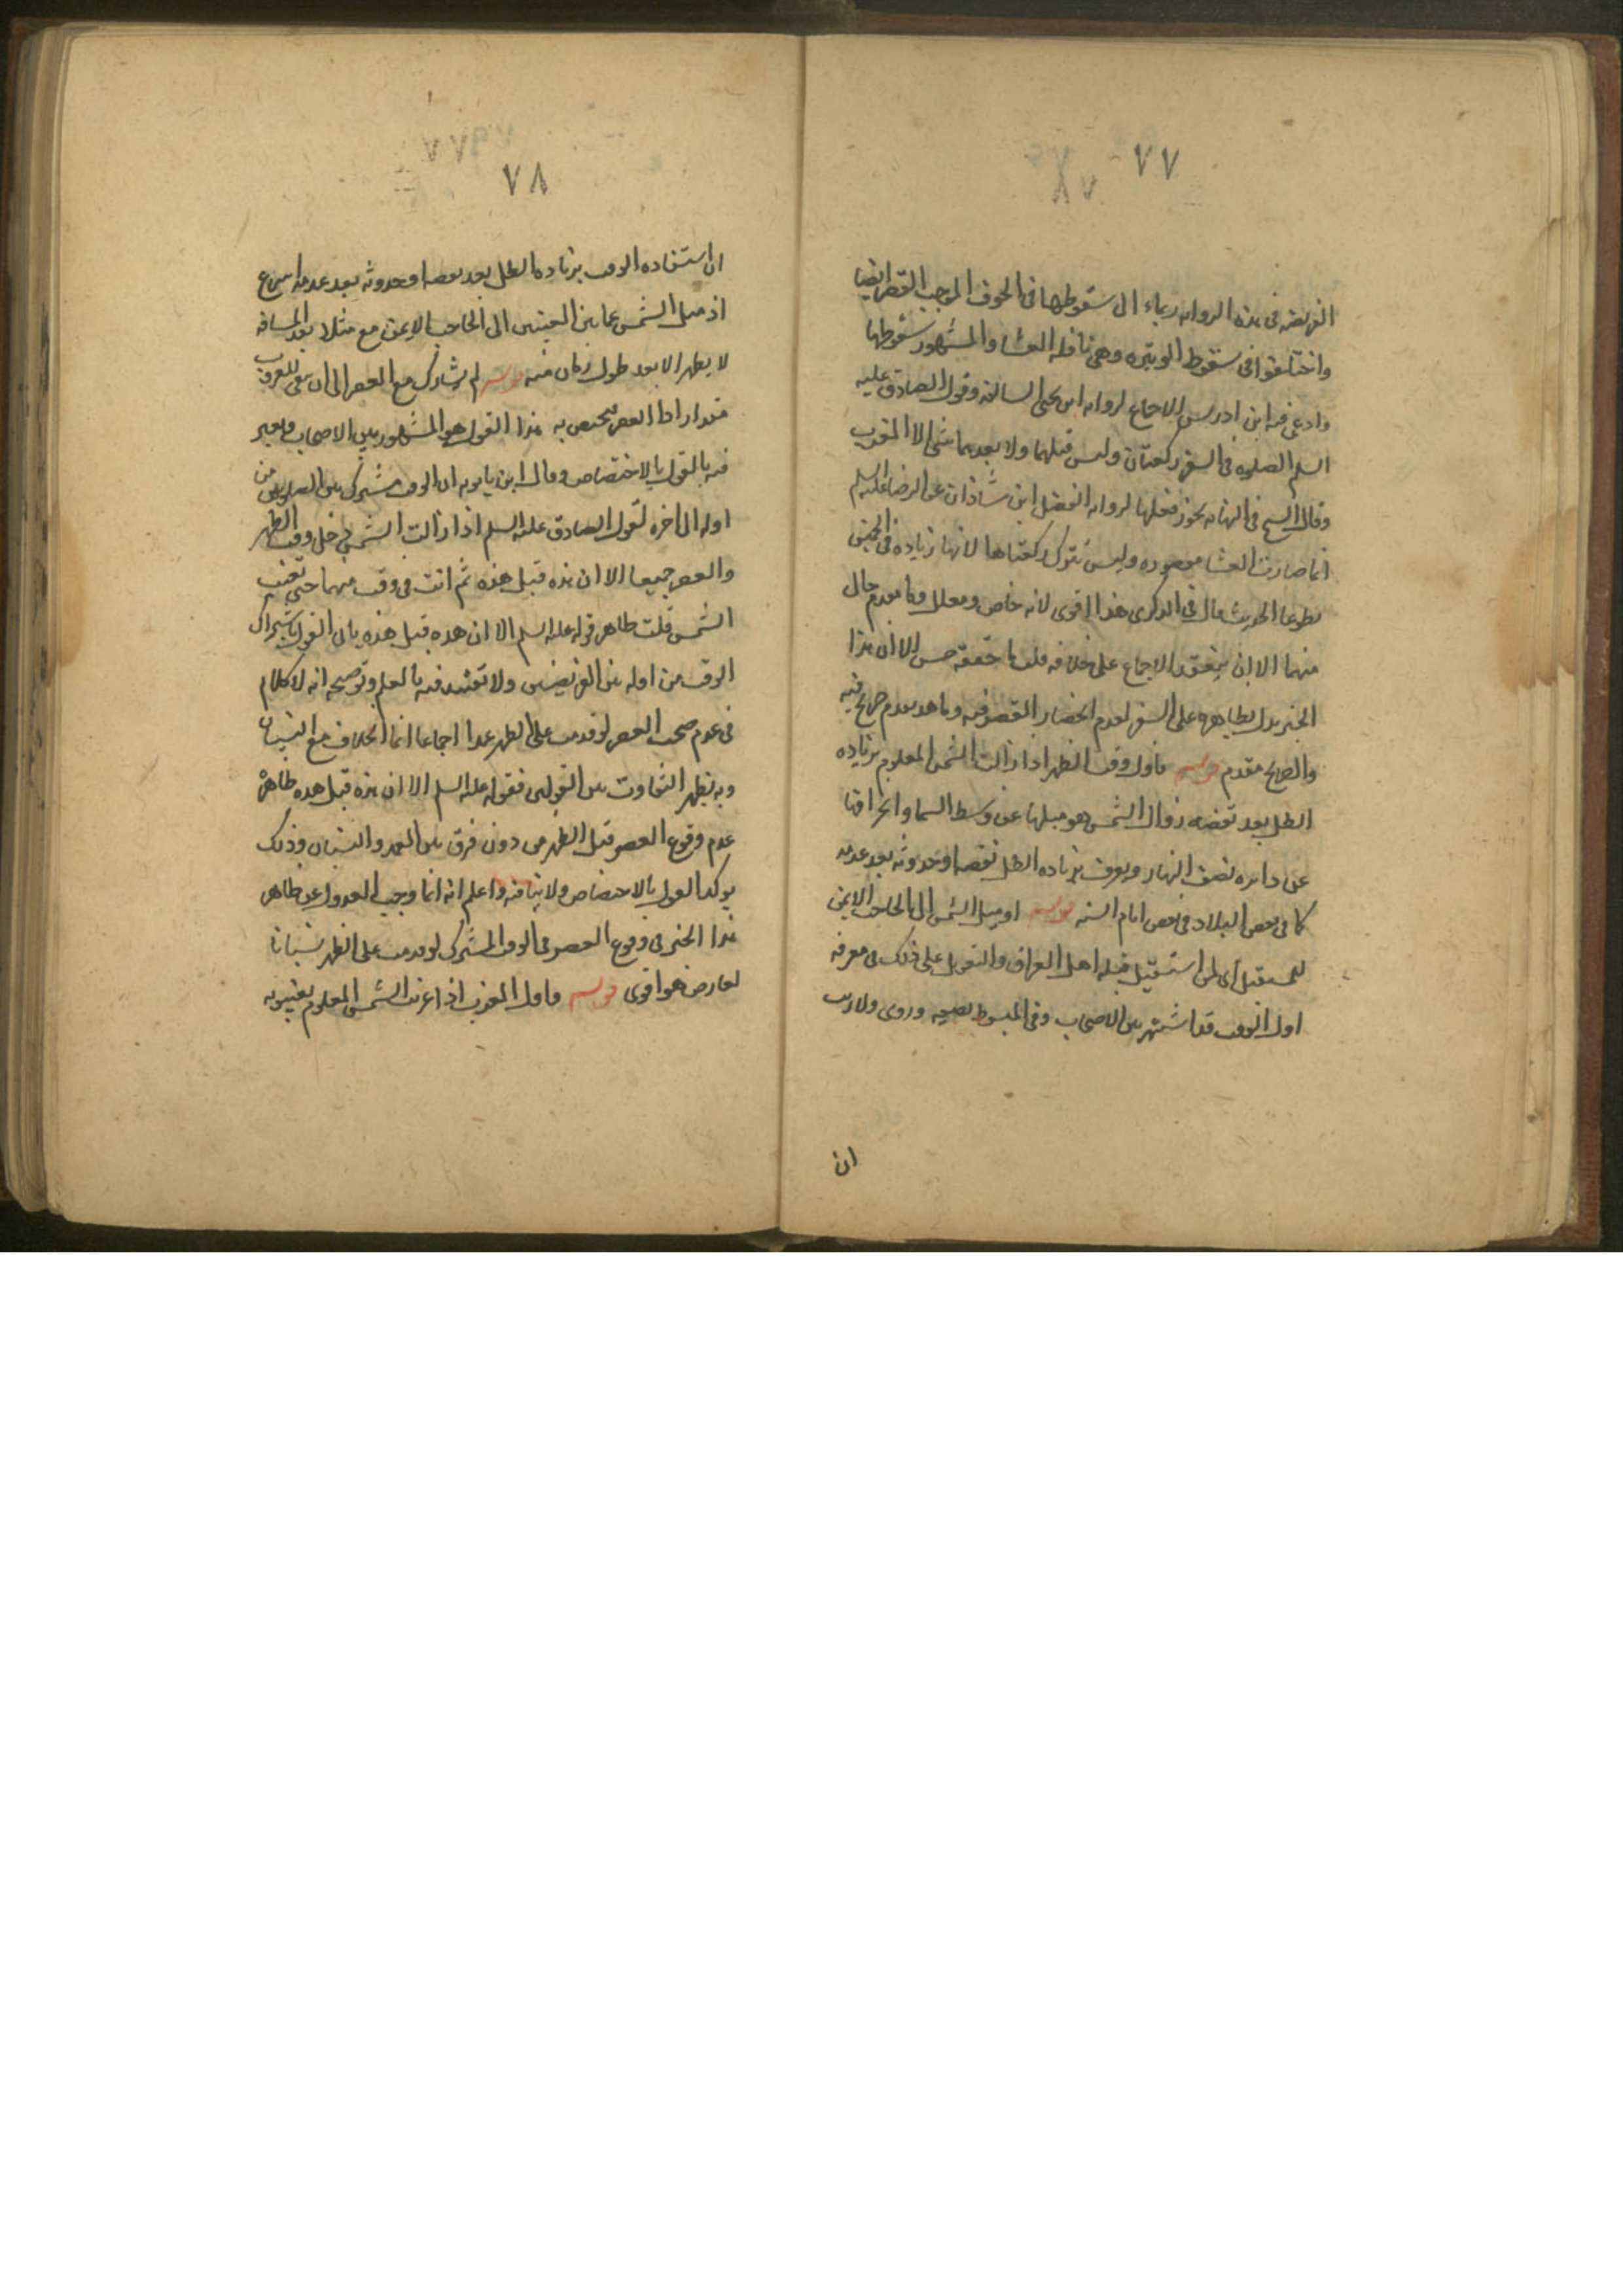 ٧٧
الفريضه فى هذه الروايه ايماء الى سقوطها فى الخوف الموجب للقصر ايضا
واختلفوا فى سقوط الوتيره وهى نافله العشاء والمشهور سقوطها
وادعى فيه ابن ادريس الاجماع لروايه ابن يحيى السالفه وقول الصادق عليه
السلم الصلوه فى السفر ركعتان وليس قبلهما ولا بعدهما شى الا المغرب
وقال الشيخ فى النهايه يجوز فعلها لروايه الفضل ابن شاذان عن الرضا عليه السلم
انما صارت العشا مقصوره وليس تترك ركعتاها لانها زياده فى الخمسين
تطوعا الحديث قال فى الذكرى هذا اقوى لانه خاص ومعلل وما تقدم خال
منهما الا ان ينعقد الاجماع على خلافه قلت ما حققه حسن الا ان هذا
الخبر يدل بظاهره على السفر لعدم انحصار القصر فيه وما تقدم صريح فيه
والصريح مقدم قوله فاول وقت الظهر اذا زالت الشمس المعلوم بزياده
الظل بعد نقصه زوال الشمس هو ميلها عن وسط السما وانحرافها
عن دايره نصف النهار ويعرف بزياده الظل بعد نقصه او حدوثه بعد عدمه
كما فى بعض البلاد فى بعض ايام السنه قوله او ميل الشمس الى الحاجب الايمن
للمستقبل اى لمن استقبل قبله اهل العراق والتعويل على ذلك فى معرفه
اول الوقت قد اشتهر بين الاصحاب وفى المبسوط نصبه وروى ولا ريب
ان
٧٨
ان استفاده الوقت بزياده الظل بعد نقصه او حدوثه بعد عدمه اسرع
اذ ميل الشمس عما بين العينين الى الحاجب الايمن مع مثلا بعد المسافه
لا يظهر الا بعد طول زمان منه قوله ثم يشارك مع العصر الى ان يبقى للغروب
مقدار اداء العصر فيختص به هذا القول هو المشهور بين الاصحاب ويعبر
فيه بالقول بالاختصاص وقال ابن بابويه ان الوقت مشترك بين الصلوتين من
اوله الى اخره لقول الصادق عليه السلم اذا زالت الشمس دخل وقت الظهر
والعصر جميعا الا ان هذه قبل هذه ثم انت فى وقت منهما حتى تغيب
الشمس قلت ظاهر قوله عليه السلم الا ان هذه قبل هذه ياى القول باشتراك
الوقت من اوله بين الفريضتين ولا تقيد فيه بالعلم وتوضيحه انه لا كلام
فى عدم صحه العصر لو قدمت على الظهر عمدا اجماعا انما الخلاف مع النسيان
وبه يظهر التفاوت بين القولين فقوله عليه السلم الا ان هذه قبل هذه ظاهره
عدم وقوع العصر قبل الظهر من دون فرق بين العمد والنسيان وذلك
يوكد القول بالاختصاص ولا ينافيه واعلم انه انما وجب العدول عن ظاهر
هذا الخبر فى وقوع العصر فى الوقت المشترك لو قدمت على الظهر نسيانا
لمعارض هو اقوى قوله فاول المغرب اذا غربت الشمس المعلوم بغيبوبه